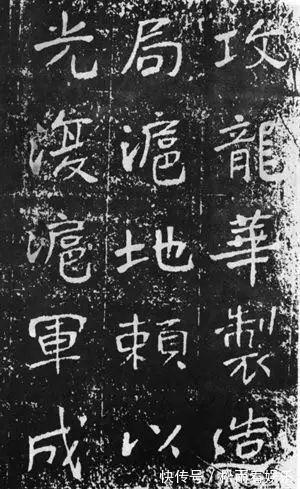 攻龍華製造
局滬地賴以
光復滬軍成